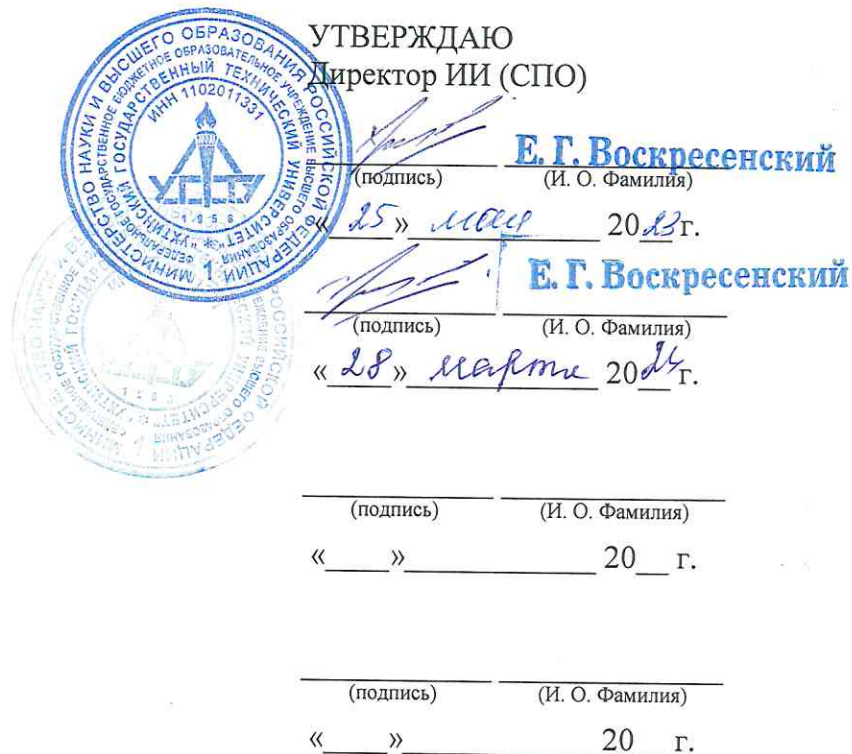 УТВЕРЖДАЮ
Директор ИИ (СПО)
Е. Г. Воскресенский
(подпись) (И. О. Фамилия)
« 25 » мая 2023 г.
Е. Г. Воскресенский
(подпись) (И. О. Фамилия)
« 28 » марта 2024 г.
(подпись) (И. О. Фамилия)
«_____»______________ 20__ г.
(подпись) (И. О. Фамилия)
«_____»______________ 20__ г.
МИНИСТЕРСТВО НАУКИ И ВЫСШЕГО ОБРАЗОВАНИЯ РОССИЙСКОЙ ФЕДЕРАЦИИ
ФЕДЕРАЛЬНОЕ ГОСУДАРСТВЕННОЕ БЮДЖЕТНОЕ ОБРАЗОВАТЕЛЬНОЕ УЧРЕЖДЕНИЕ ВЫСШЕГО ОБРАЗОВАНИЯ
"УХТИНСКИЙ ГОСУДАРСТВЕННЫЙ ТЕХНИЧЕСКИЙ УНИВЕРСИТЕТ"
ИНН 1102011331
УГТУ
1958
1